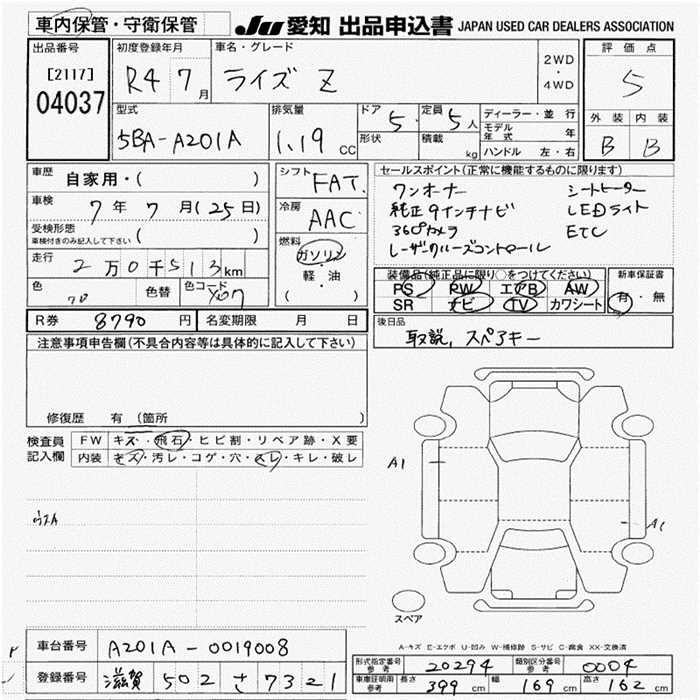 車内保管・守衛保管
JU 愛知 出品申込書 JAPAN USED CAR DEALERS ASSOCIATION
出品番号
[2117]
04037
初度登録年月
R4 7月
車名・グレード
ライズ Z
2WD
・
4WD
評価点
5
型式
5BA-A201A
排気量
1.19 cc
ドア
5
形状
定員
5人
積載
kg
ディーラー・並行
モデル年式 年
ハンドル 左・右
外装 内装
B B
車歴
自家用・( )
車検
7年7月(25日)
受検形態
車検付きのみ記入して下さい ( )
走行
2万0千513km
色
色替
色コード
シフト
FAT
冷房
AAC
燃料
ガソリン
・
軽・油
( )
セールスポイント(正常に機能するものに限ります)
ワンオーナー シートヒーター
純正9インチナビ LEDライト
360°カメラ ETC
レーザークルーズコントロール
装備品(純正品に限り○をつけてください)
PS PW エアB AW
SR ナビ TV カワシート
新車保証書
有・無
R券 8790円
名変期限 月 日
後日品
取説, スペアキー
注意事項申告欄(不具合内容等は具体的に記入して下さい)
修復歴 有(箇所 )
検査員記入欄
FW キズ・飛石・ヒビ割・リペア跡・X要
内装 キズ・汚レ・コゲ・穴・スレ・キレ・破レ
A1
A1
スペア
A-キズ E-エクボ U-凹み W-補修跡 S-サビ C-腐食 XX-交換済
車台番号 A201A-0019008
登録番号 滋賀 502 さ 7321
形式指定番号 参考 20294
類別区分番号 参考 0004
車庫証明用 参考 長さ 399cm 幅 169cm 高さ 162cm